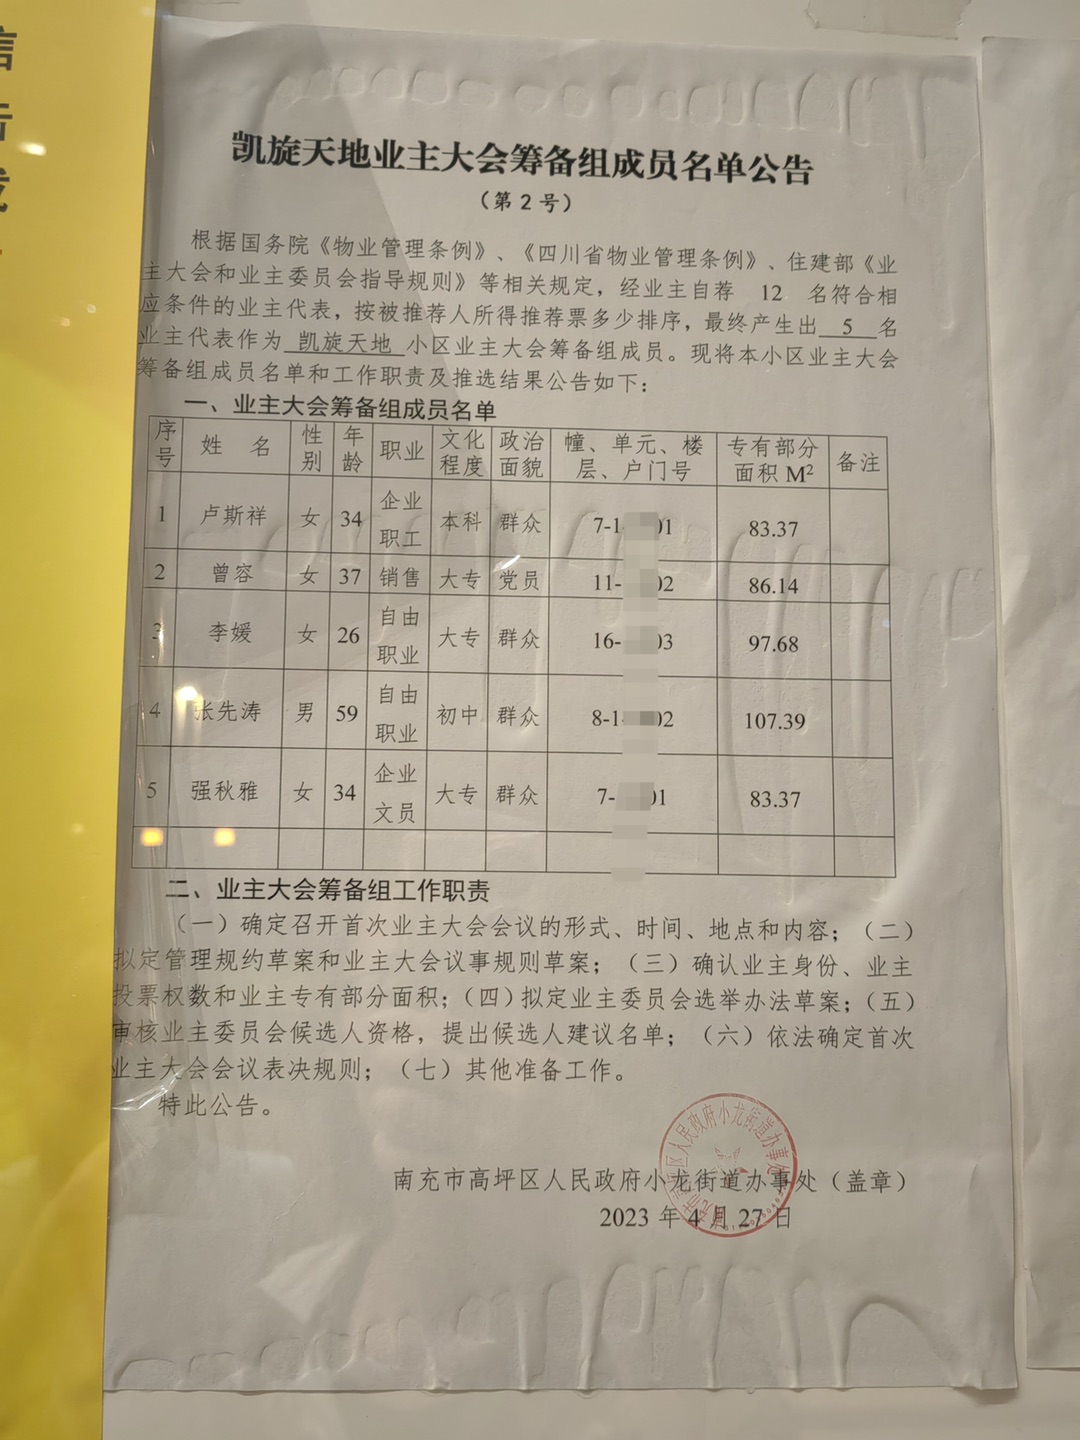 凯旋天地业主大会筹备组成员名单公告
（第2号）
根据国务院《物业管理条例》、《四川省物业管理条例》、住建部《业
主大会和业主委员会指导规则》等相关规定，经业主自荐 12 名符合相
应条件的业主代表，按被推荐人所得推荐票多少排序，最终产生出 5 名
业主代表作为 凯旋天地 小区业主大会筹备组成员。现将本小区业主大会
筹备组成员名单和工作职责及推选结果公告如下：
一、业主大会筹备组成员名单
序号 姓 名 性别 年龄 职业 文化程度 政治面貌 幢、单元、楼层、户门号 专有部分面积 M² 备注
1 卢斯祥 女 34 企业职工 本科 群众 7-1 01 83.37
2 曾容 女 37 销售 大专 党员 11- 02 86.14
3 李媛 女 26 自由职业 大专 群众 16- 03 97.68
4 张先涛 男 59 自由职业 初中 群众 8-1 02 107.39
5 强秋雅 女 34 企业文员 大专 群众 7- 01 83.37
二、业主大会筹备组工作职责
（一）确定召开首次业主大会会议的形式、时间、地点和内容；（二）
拟定管理规约草案和业主大会议事规则草案；（三）确认业主身份、业主
投票权数和业主专有部分面积；（四）拟定业主委员会选举办法草案；（五）
审核业主委员会候选人资格，提出候选人建议名单；（六）依法确定首次
业主大会会议表决规则；（七）其他准备工作。
特此公告。
南充市高坪区人民政府小龙街道办事处（盖章）
2023 年 4 月 27 日